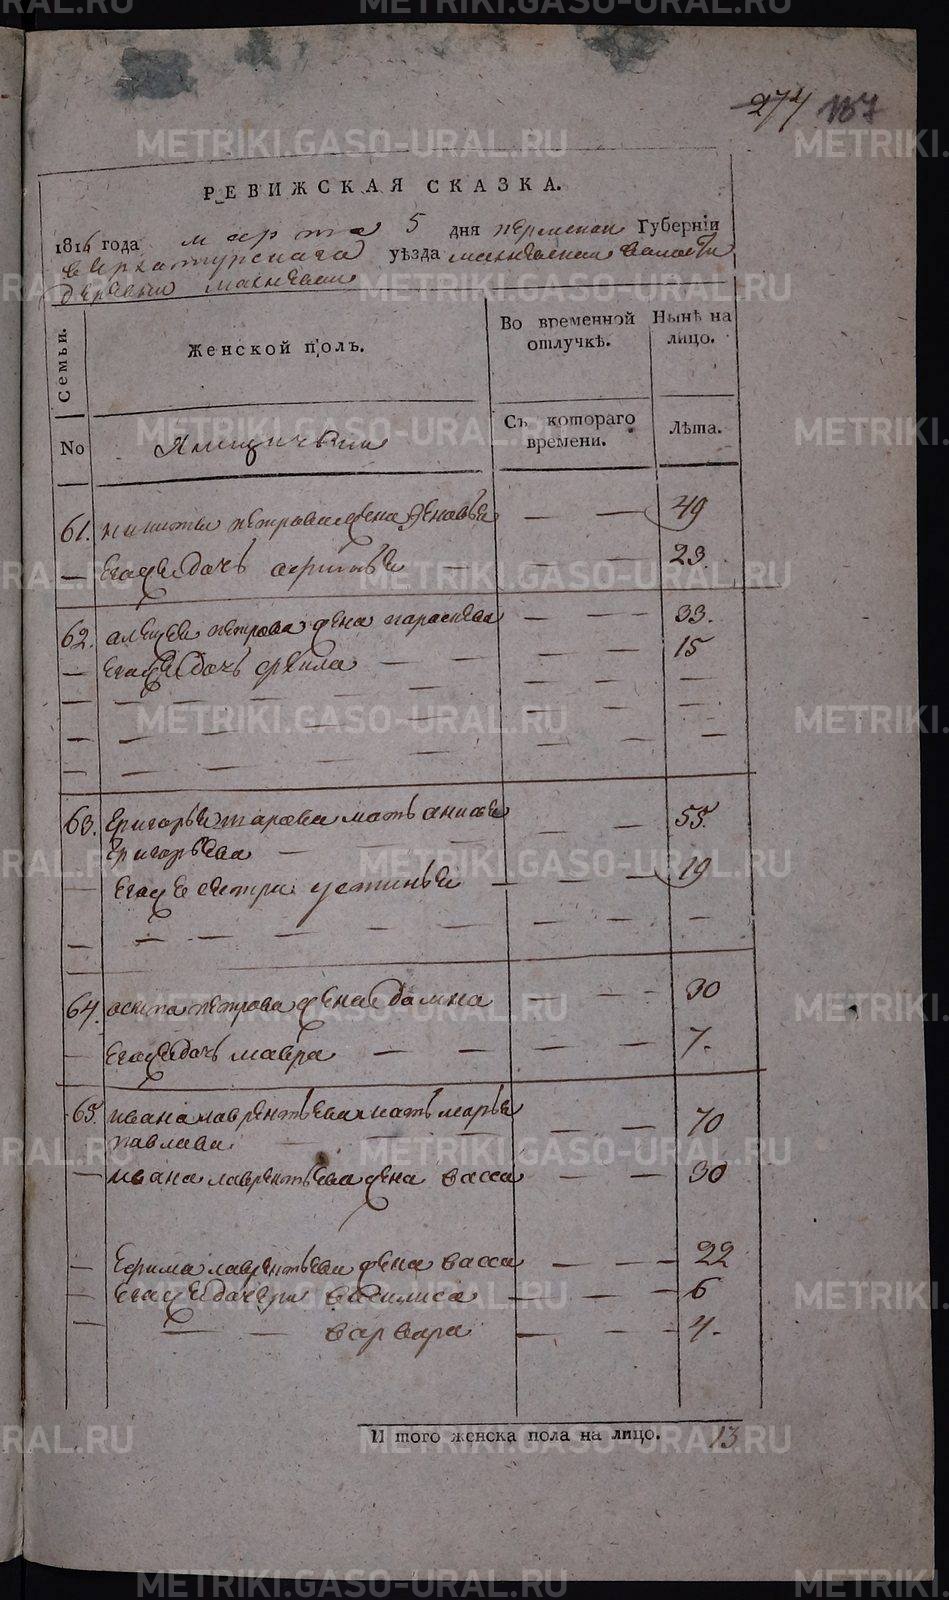 274 187
РЕВИЖСКАЯ СКАЗКА.
1816 года марта 5 дня пермской Губернїи
верхотурскаго уѣзда махневской волости
деревни махневой
Семьи. Женской полъ. Во временной отлучкѣ. Нынѣ на лицо.
No Ямщичьки Съ котораго времени. Лѣта.
61. никиты петрова жена зеновья — — 49
— егоже дочь агрипѣна — — — 23.
62. алексея петрова жена параскева — — 33.
— егоже дочь фекла — — — — 15
63. григорья тарова мать анисья — — 55.
григорьева —
— егоже сестра устинья — — — 19
64. осипа петрова жена домна — — 30
— егоже дочь мавра — — — — 7.
65. ивана лаврентьева мать марья — — 70
павлова
— ивана лаврентьева жена васса — — 30
— ефима лаврентьева жена васса — — 22
— егоже дочери василиса — — — 6
— — — варвара — — — 4.
И того женска пола на лицо. 13
METRIKI.GASO-URAL.RU